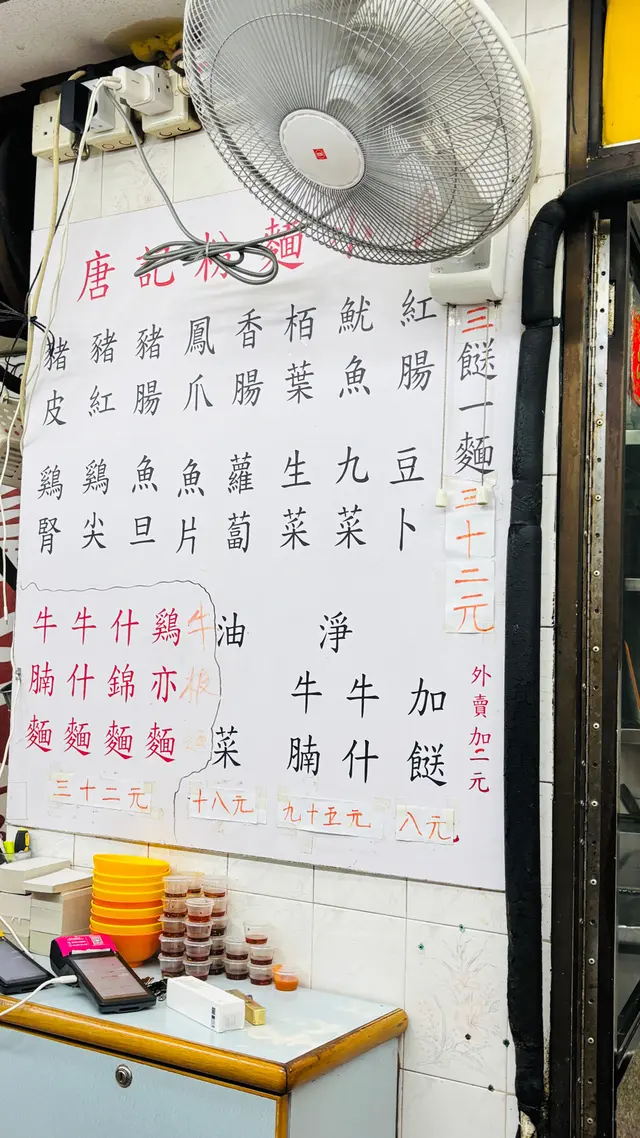 唐記粉麵
豬皮
豬紅
豬腸
鳳爪
香腸
栢葉
魷魚
紅腸
鷄腎
鷄尖
魚旦
魚片
蘿蔔
生菜
九菜
豆卜
三餸一麵三十二元
牛腩麵
牛什麵
什錦麵
鷄亦麵
三十二元
油菜
十八元
淨
牛腩
牛什
九十五元
加餸
八元
外賣加二元